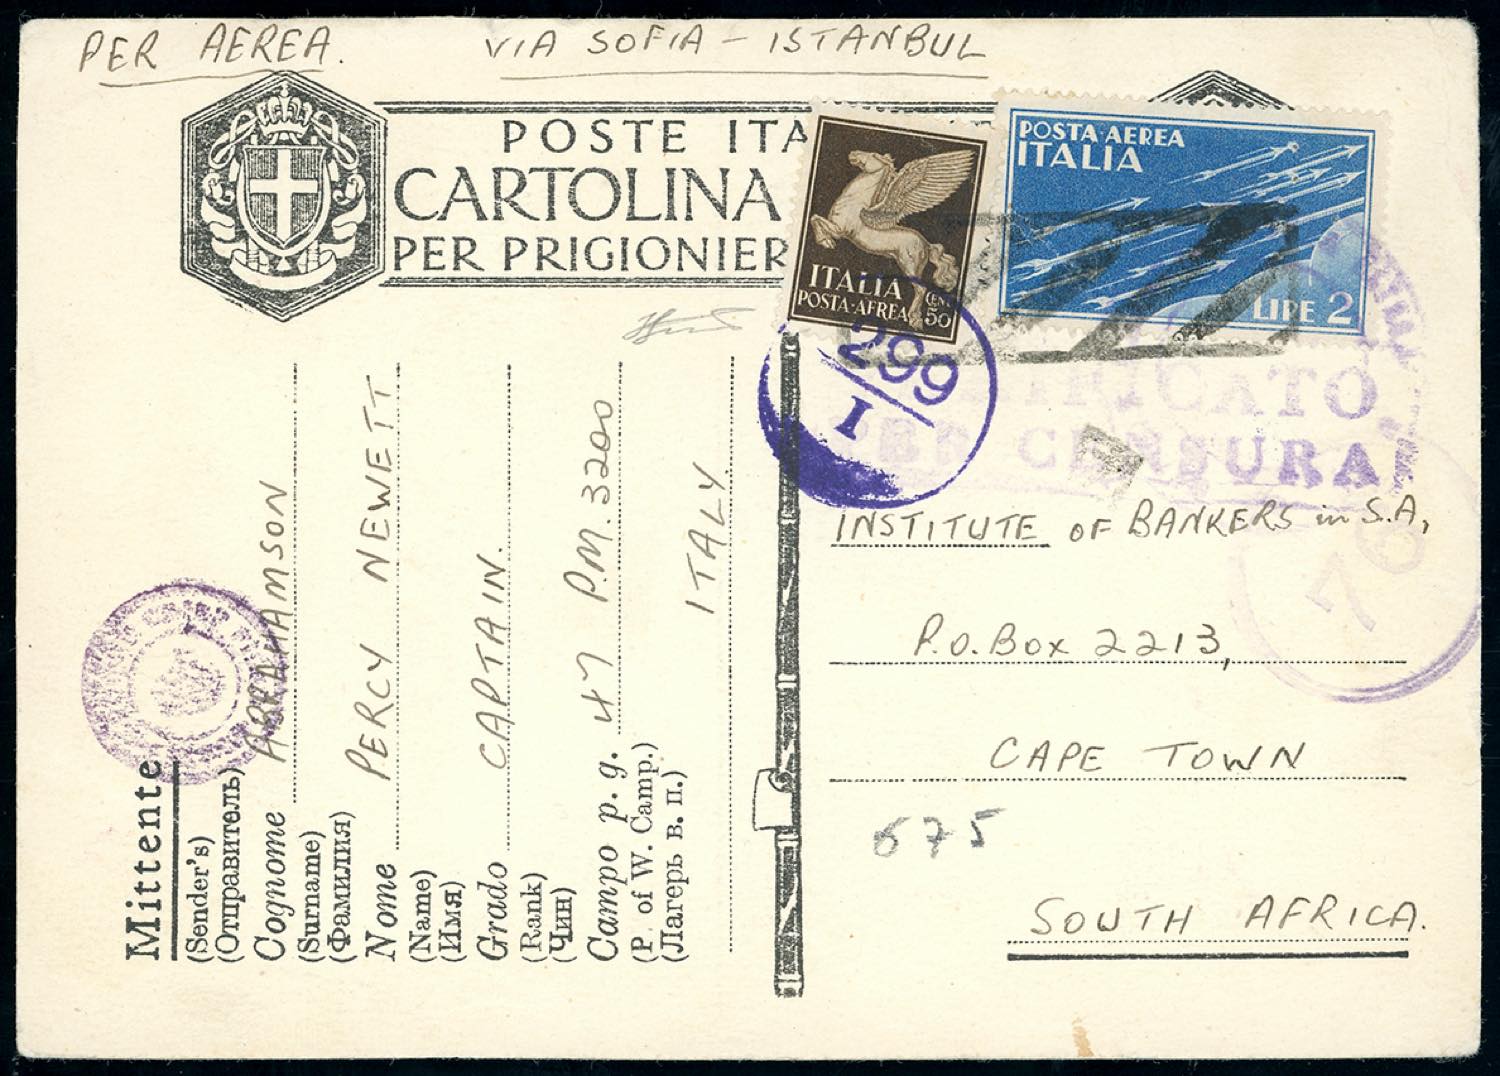 PER AEREA. VIA SOFIA - ISTANBUL
POSTE ITA
CARTOLINA
PER PRIGIONIER
ITALIA
POSTA-AEREA
CENT 50
POSTA AEREA
ITALIA
LIRE 2
299
I
PER CENSURA
76
INSTITUTE OF BANKERS in S.A,
P.O. Box 2213,
CAPE TOWN
675
SOUTH AFRICA.
Mittente
(Sender's)
(Отправитель)
Cognome ABRAHAMSON
(Surname)
(Фамилия)
Nome PERCY NEWETT
(Name)
(Имя)
Grado CAPTAIN.
(Rank)
(Чин)
Campo p. g. 47 P.M. 3200
(P. of W. Camp.)
(Лагерь в. п.)
ITALY